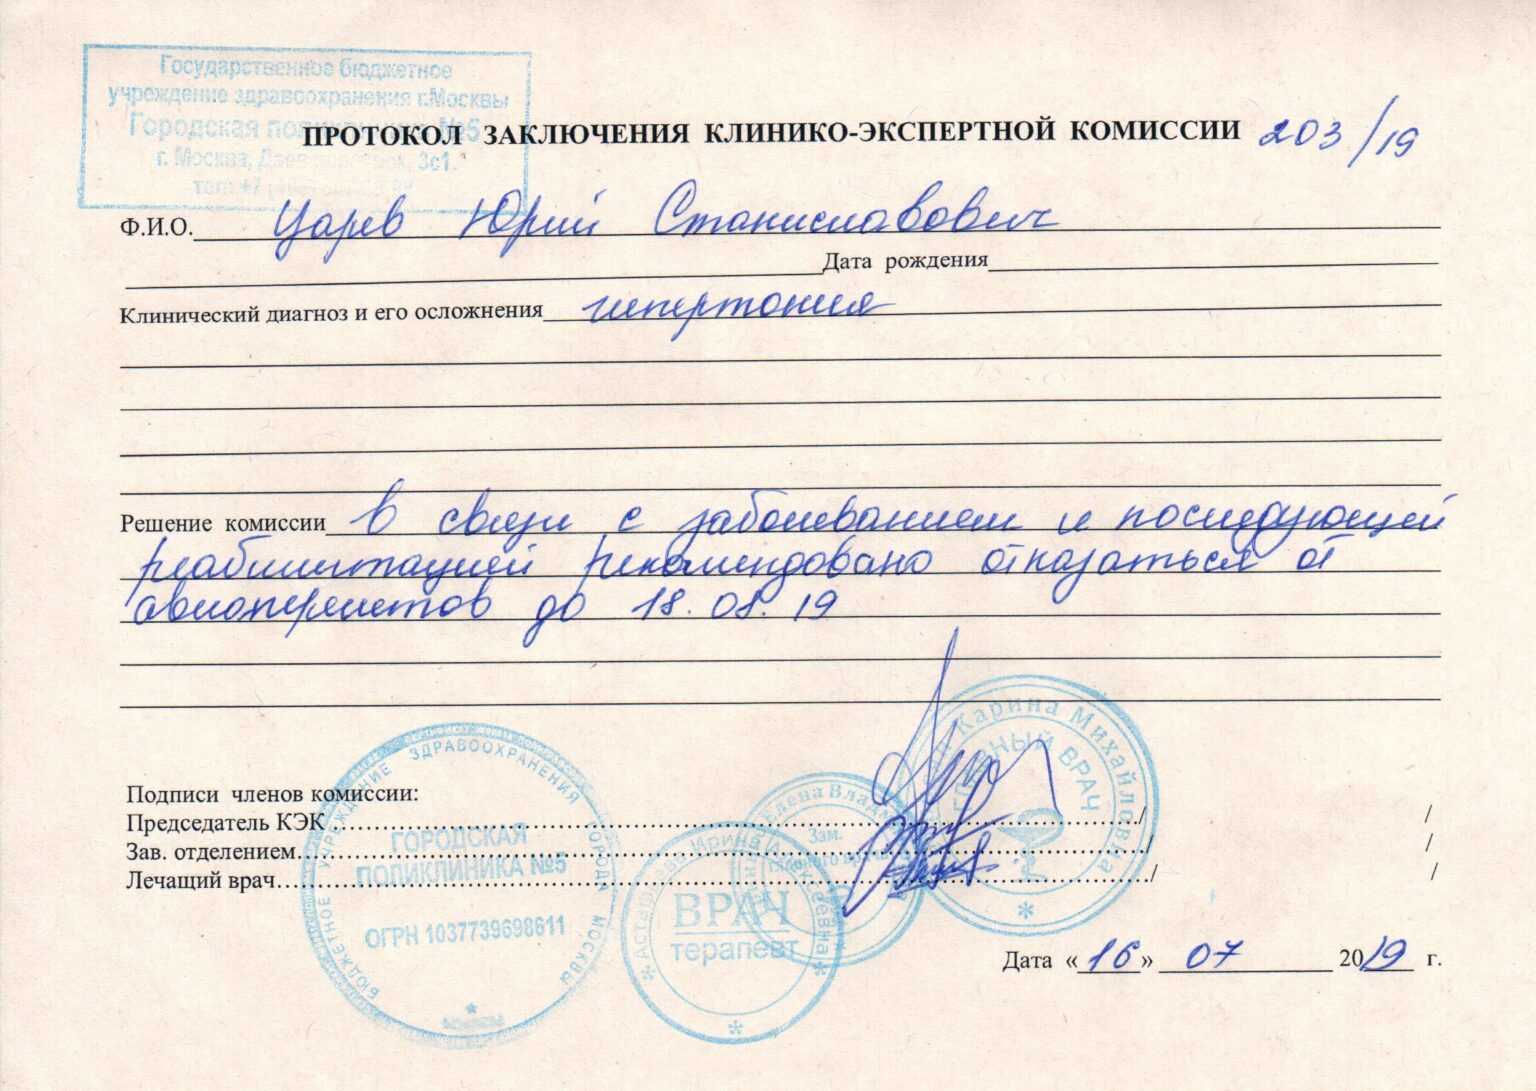 Государственное бюджетное
учреждение здравоохранения г.Москвы
Городская поликлиника №5
г. Москва, 3с1.
ПРОТОКОЛ ЗАКЛЮЧЕНИЯ КЛИНИКО-ЭКСПЕРТНОЙ КОМИССИИ 203/19
Ф.И.О. Царев Юрий Станиславович
Дата рождения
Клинический диагноз и его осложнения гипертония
Решение комиссии в связи с заболеванием и последующей
реабилитацией рекомендовано отказаться от
авиоперелетов до 18.08.19
Подписи членов комиссии:
Председатель КЭК /  /
Зав. отделением /  /
Лечащий врач /  /
БЮДЖЕТНОЕ УЧРЕЖДЕНИЕ ЗДРАВООХРАНЕНИЯ ГОРОДА МОСКВЫ
ГОРОДСКАЯ
ПОЛИКЛИНИКА №5
ОГРН 1037739698611
Ирина Алексеевна
ВРАЧ
терапевт
Елена
Зам.
главного врача
Карина Михайловна
ГЛАВНЫЙ ВРАЧ
Дата «16» 07 2019 г.